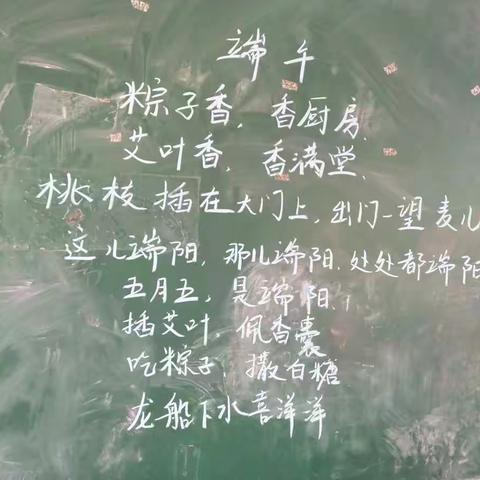 端午
粽子香，香厨房.
艾叶香，香满堂.
桃枝插在大门上，出门一望麦儿
这儿端阳，那儿端阳.处处都端阳
五月五，是端阳.
插艾叶.佩香囊
吃粽子，撒白糖
龙船下水喜洋洋